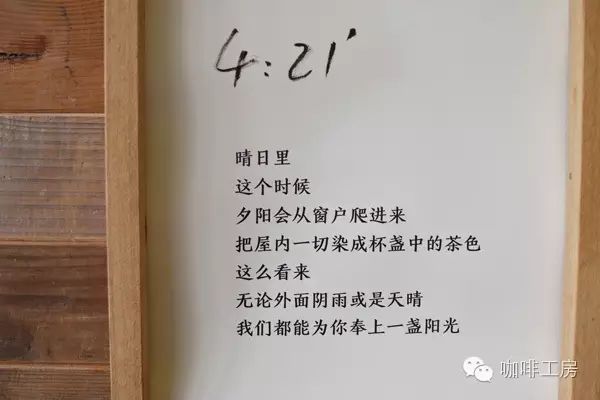 4:21'
晴日里
这个时候
夕阳会从窗户爬进来
把屋内一切染成杯盏中的茶色
这么看来
无论外面阴雨或是天晴
我们都能为你奉上一盏阳光
咖啡工房